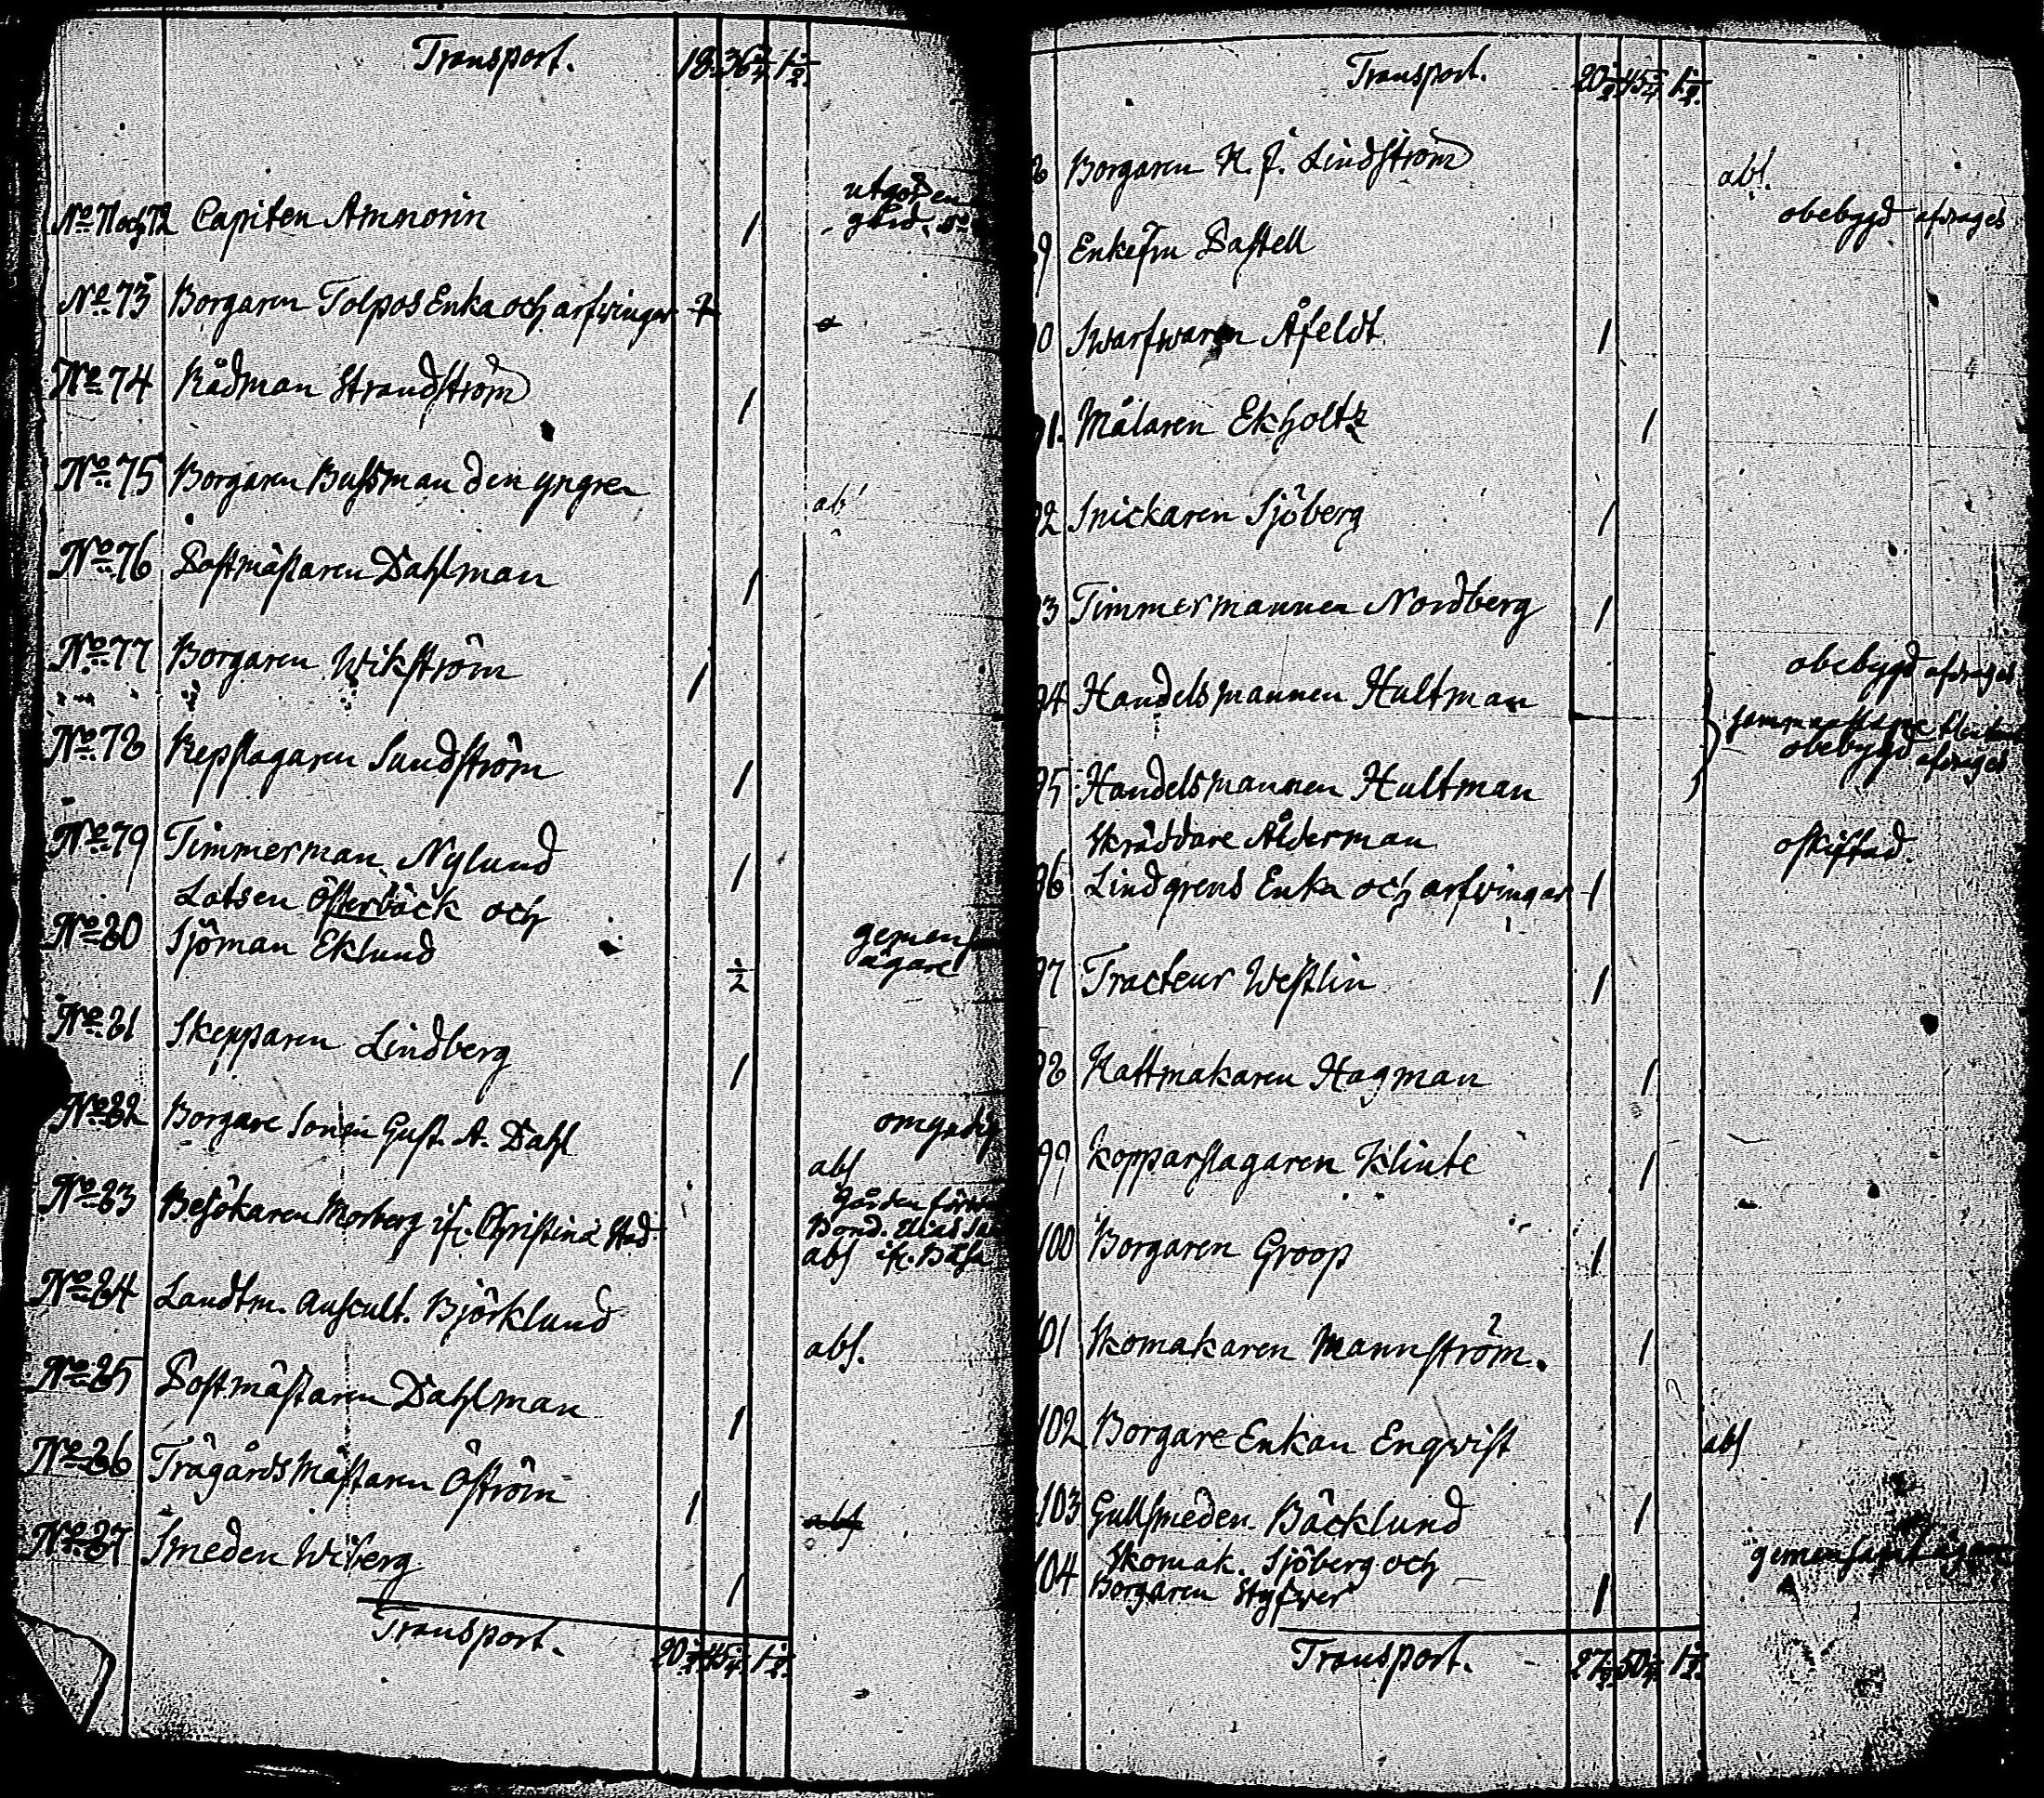 Transport. 18. 36 3/4 1 1/2.
utgör en
No 71 och 72 Capiten Amnorin 1 gård. No
No 73 Borgaren Tolpos Enka och arfvingar
No 74 Rådman Strandström 1
No 75 Borgaren Bussman den yngre abs
No 76 Postmästaren Dahlman 1
No 77 Borgaren Wikström 1
No 78 Repslagaren Sundström 1
No 79 Timmerman Nylund 1
Lotsen Österbäck och
No 80 Sjöman Eklund 1/2 gemens
ägare
No 81 Skepparen Lindberg 1
No 82 Borgare Sonen Gust. A. Dahl omyndig
abs
No 83 Besökaren Morberg i Christinæ Stad Gården förer
Bond. Elias
abs
No 84 Landtm. Auscult. Björklund
abs.
No 85 Postmästaren Dahlman 1
No 86 Trägårdsmästaren Öström 1
abs
No 87 Smeden Wiberg 1
Transport. 20 1/2 45 1/4 1 1/2.
Transport. 20 1/2 45 1/4 1 1/2.
8 Borgaren H. J. Lindström abs.
obebygd afdrages
9 Enkefru Pastell
0 Swarfwaren Åfeldt 1
91. Målaren Ekholtz 1
92 Snickaren Sjöberg 1
93 Timmermannen Nordberg 1
obebygd afdrages
94 Handelsmannen Hultman
obebygd afdrages
95 Handelsmannen Hultman
Skräddare Ålderman oskiftad.
96 Lindgrens Enka och arfvingar 1
97 Tracteur Westlin 1
98 Hattmakaren Hagman 1
99 Kopparslagaren Klinte 1
100 Borgaren Groop 1
101 Skomakaren Mannström. 1
102 Borgare Enkan Enqvist abs
103 Gullsmeden Bäcklund 1
Skomak. Sjöberg och gemensamt ägare
104 Borgaren Styfwer 1
Transport. 27 1/2 50 1/4 1 1/2.